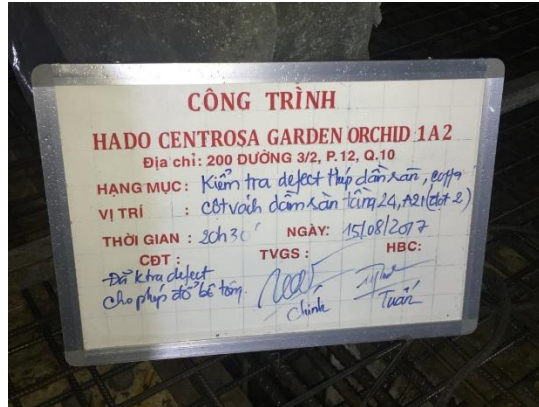 CÔNG TRÌNH
HADO CENTROSA GARDEN ORCHID 1A2
Địa chỉ: 200 ĐƯỜNG 3/2, P.12, Q.10
HẠNG MỤC: Kiểm tra defect thép dầm sàn, coffa
VỊ TRÍ : cột vách dầm sàn tầng 24, A21 (đợt 2)
THỜI GIAN : 20h30' NGÀY: 15/08/2017
CĐT : TVGS : HBC:
Đã ktra defect
cho phép đổ bê tông.
Chinh Tuấn